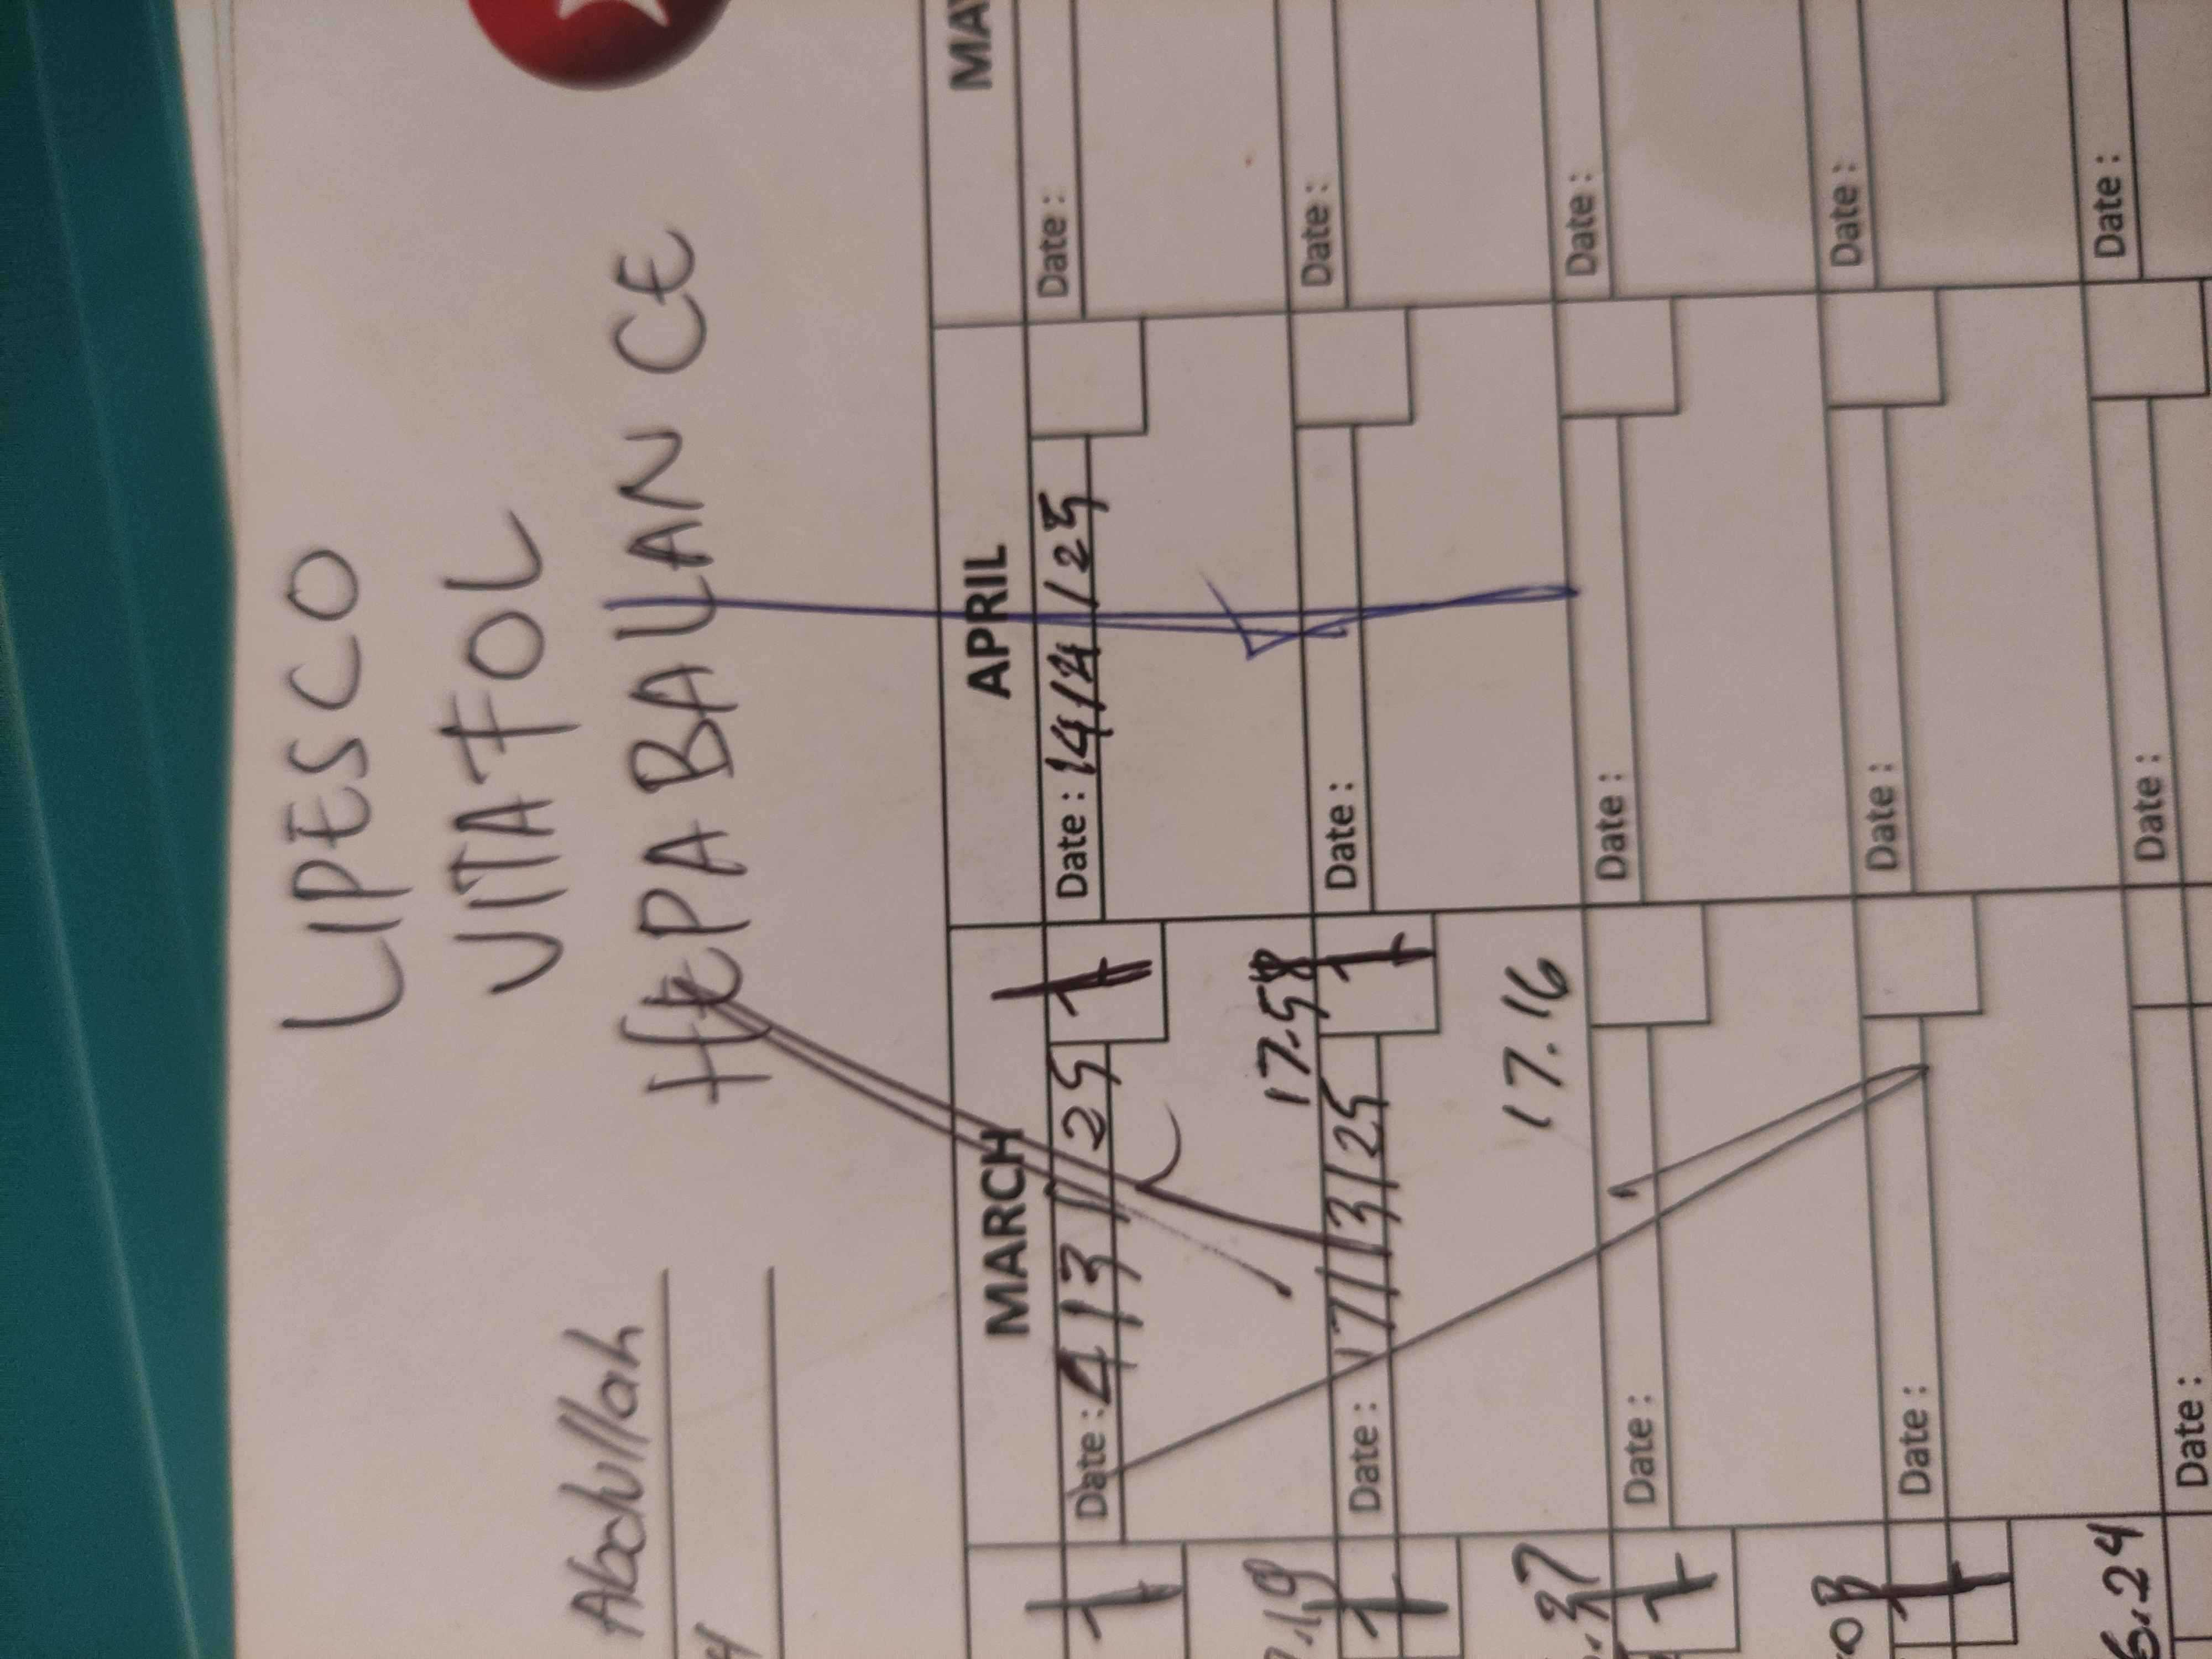 LIPESCO
VITAFOL
HEPA BALLAN CE
Abdullah
MARCH
APRIL
Date : 4/3/25
Date : 14/4/25
Date :
17.58
Date : 17/3/25
Date :
Date :
17.16
Date :
Date :
Date :
Date :
Date :
Date :
6.24
Date :
Date :
Date :